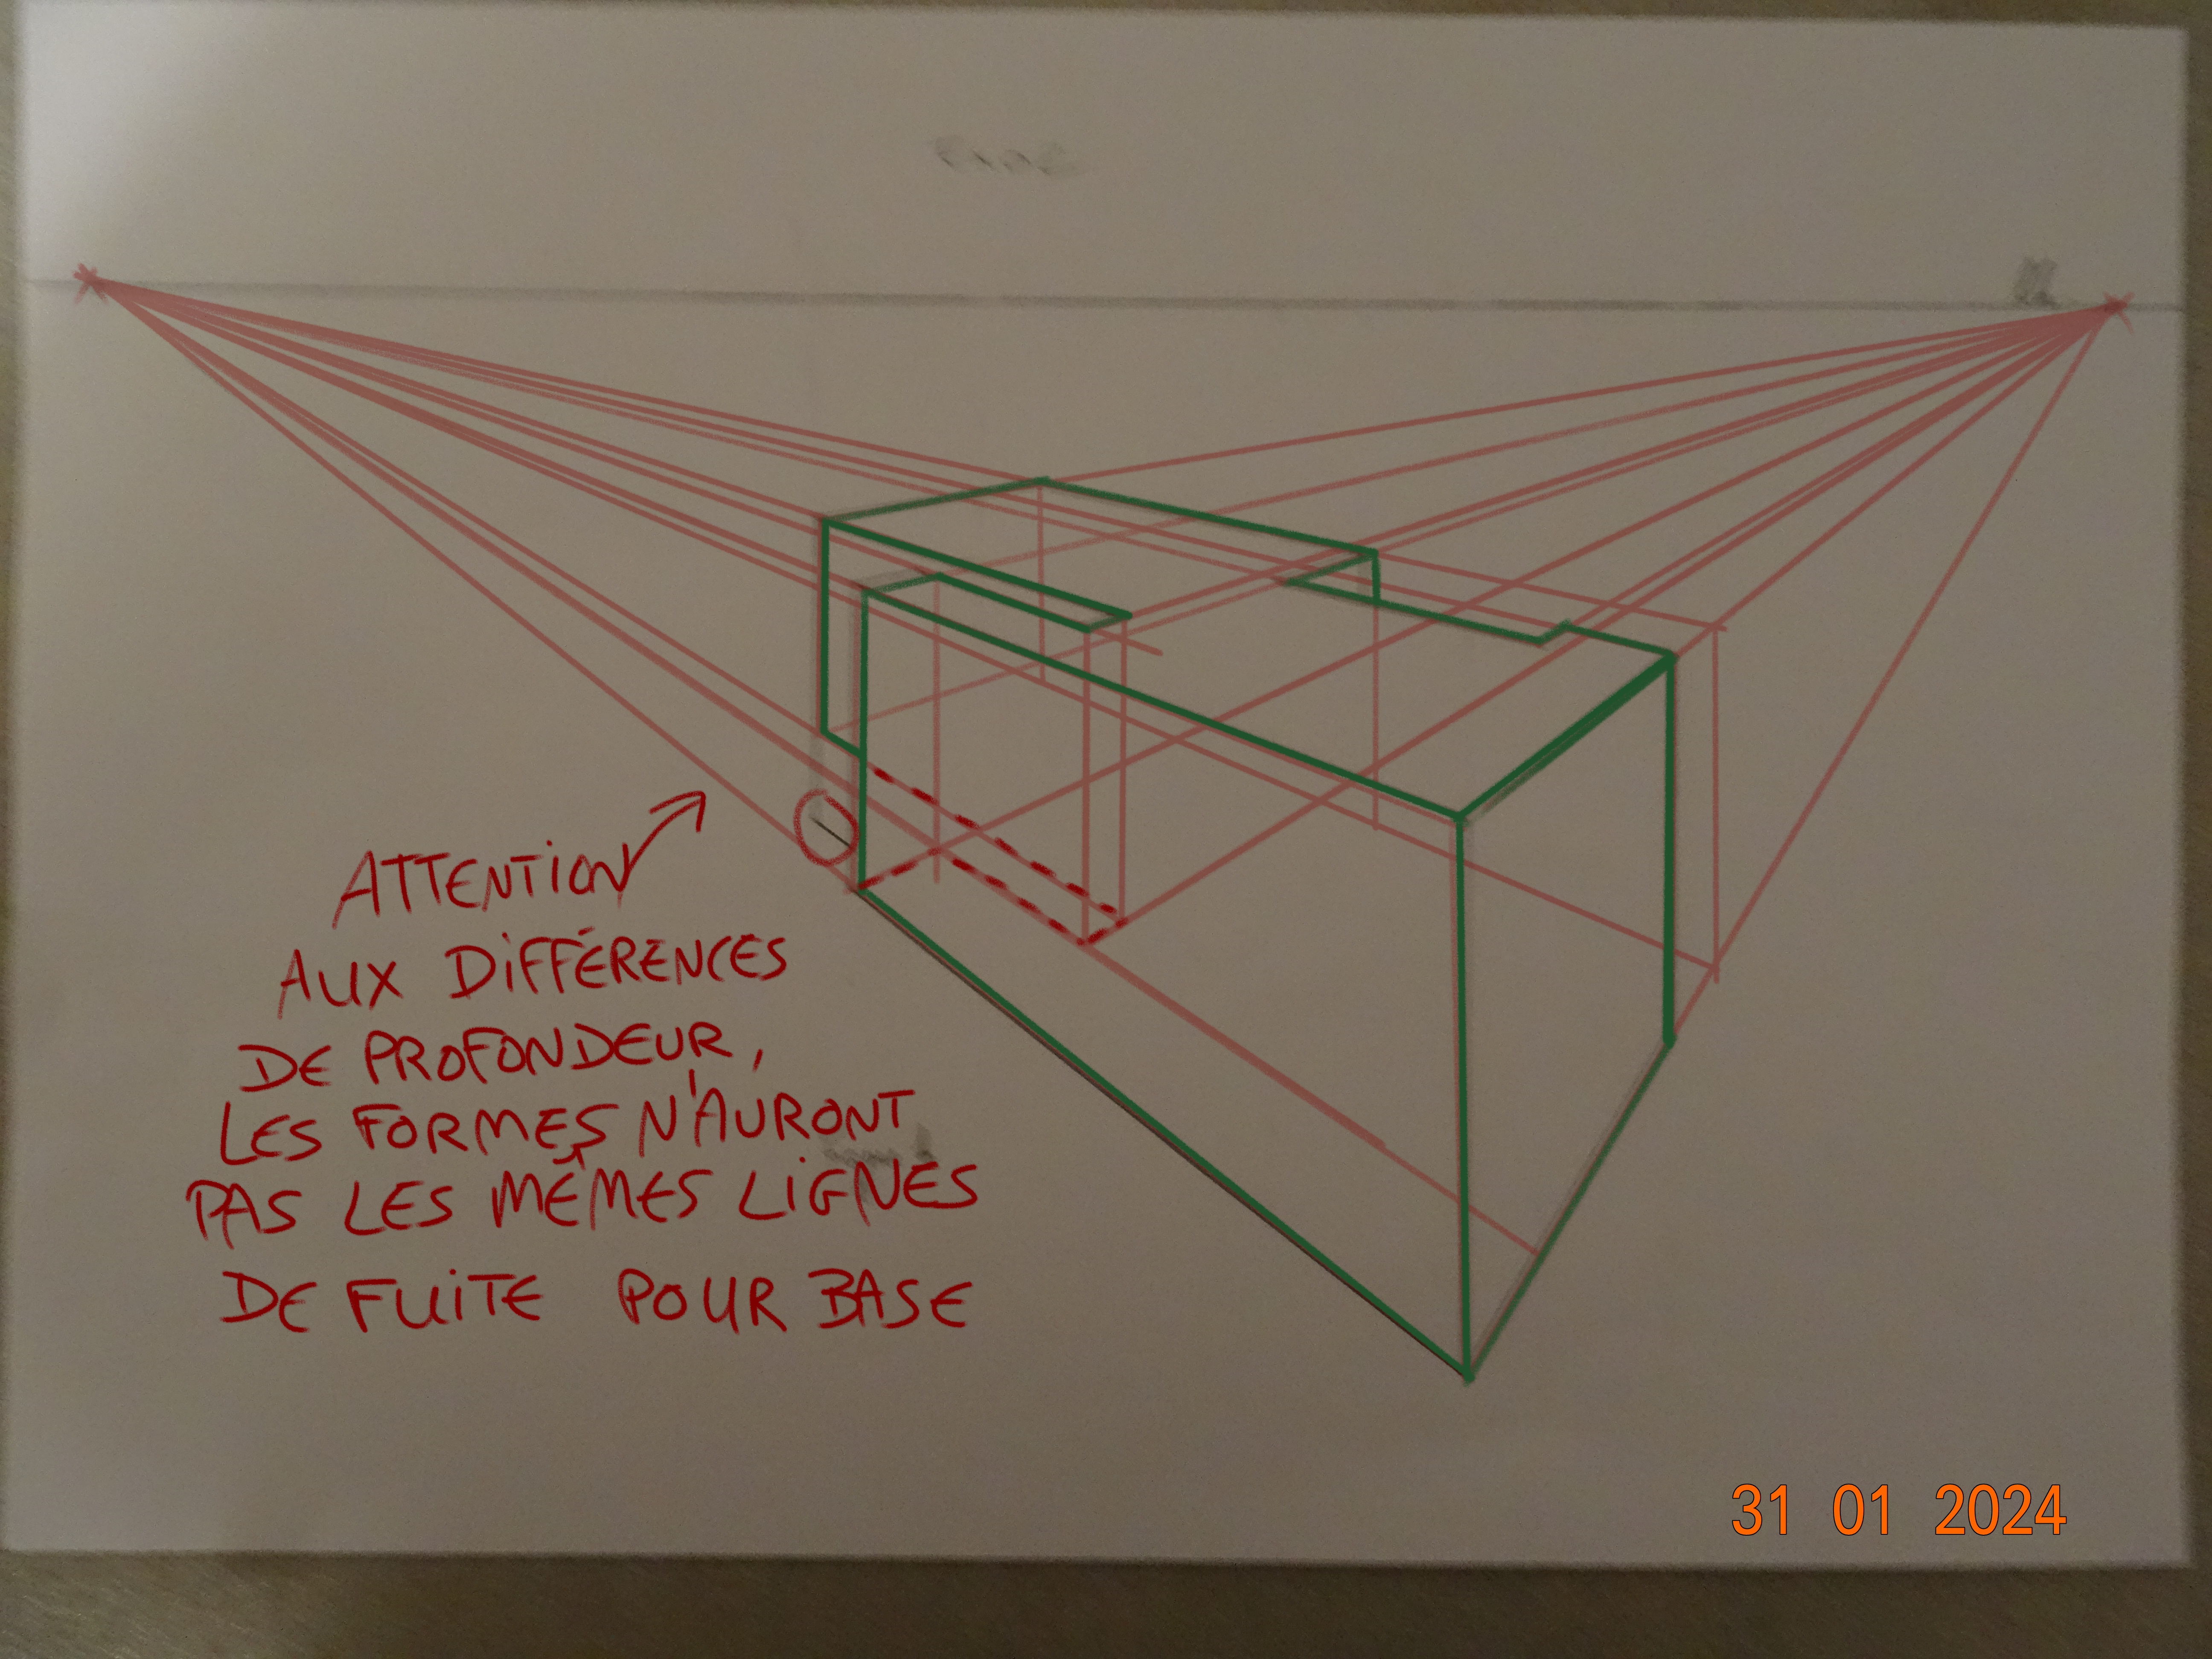 ATTENTION
AUX DIFFÉRENCES
DE PROFONDEUR,
LES FORMES N'AURONT
PAS LES MÊMES LIGNES
DE FUITE POUR BASE
31 01 2024